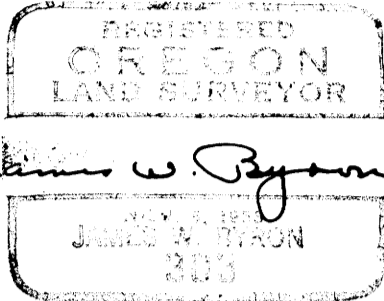 REGISTERED
OREGON
LAND SURVEYOR
James W. Byron
JAMES W. BYRON
303